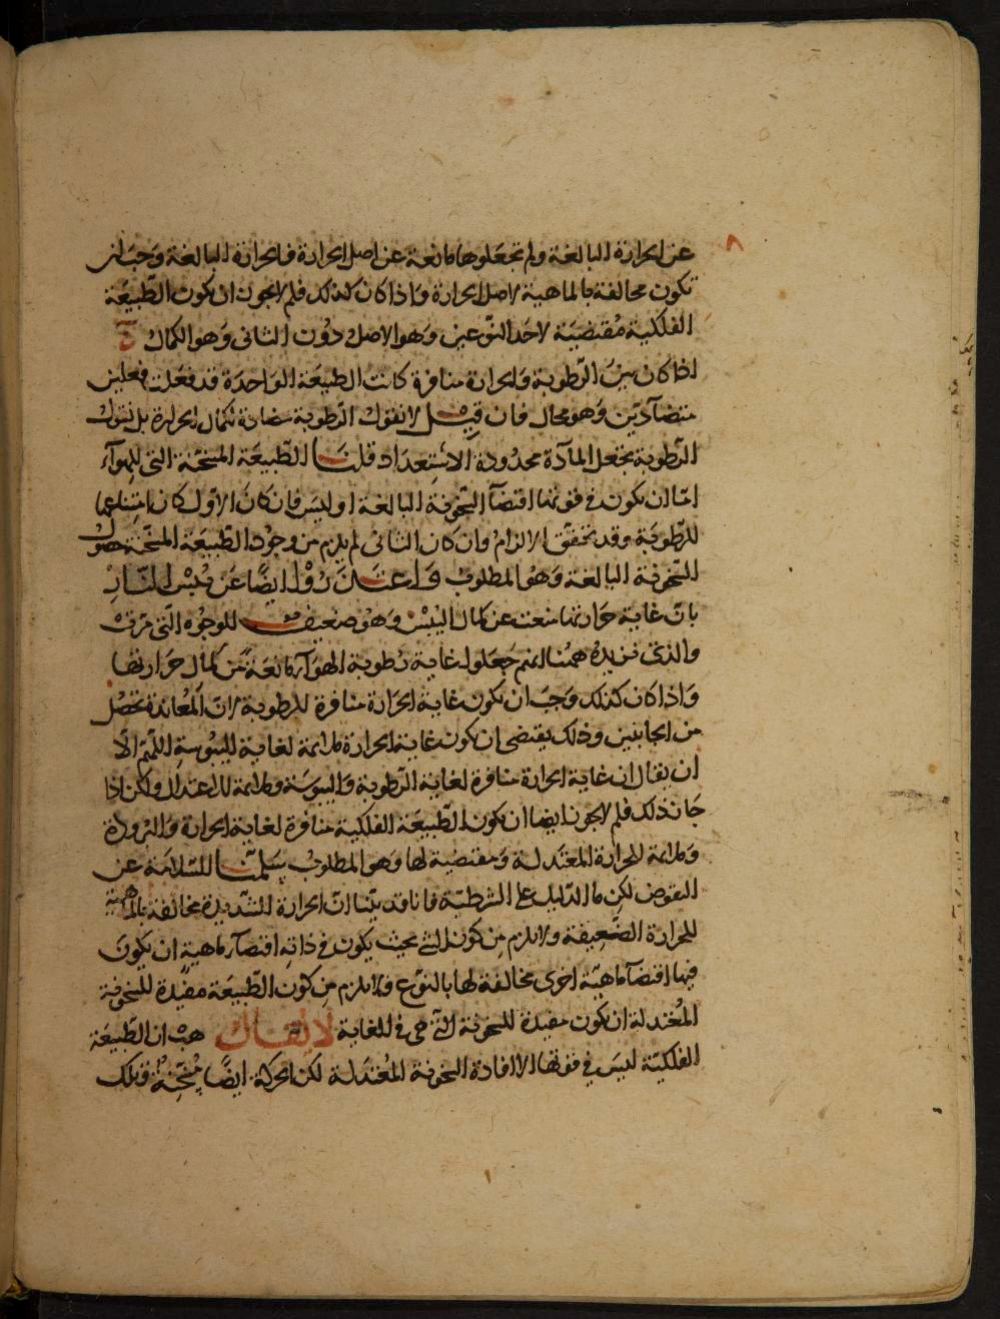 عن الحرارة البالغة ولم تجعلوها مانعة عن اصل الحرارة فالحرارة البالغة وجب ان
تكون مخالفة بالماهية لاصل الحرارة واذا كان كذلك فلم لا يجوز ان يكون الطبيعة
الفلكية مقتضية لاحد النوعين وهو الاصل دون الثاني وهو الكمال
اذا كان بين الرطوبة والحرارة منافرة كانت الطبيعة الواحدة قد فعلت فعلين
متضادين وهو محال فان قيل لا نقول الرطوبة مضادة لكمال الحرارة بل نقول
الرطوبة تجعل المادة محدودة الاستعداد قلنا الطبيعة المسخنة التي للهواء
اما ان يكون في قوتها اقتضاء السخونة البالغة او ليس فان كان الاول كان امتناعها
للرطوبة وقد تحقق الالزام وان كان الثاني لم يلزم من وجود الطبيعة المسخنة حصول
السخونة البالغة وهو المطلوب واعتذروا ايضا عن يبس النار
بان غاية حرارتها منعت عن كمال اليبس وهو ضعيف للوجوه التي مرت
والذي نزيده ههنا انهم جعلوا غاية رطوبة الهواء مانعة عن كمال حرارتها
واذا كان كذلك وجب ان تكون غاية الحرارة منافرة للرطوبة لان المعاندة تحصل
من الجانبين وذلك يقتضي ان تكون غاية الحرارة ملائمة لغاية اليبوسة اللهم الا
ان يقال ان غاية الحرارة منافرة لغاية الرطوبة واليبوسة وملائمة للاعتدال ولكن اذا
جاز ذلك فلم لا يجوز ايضا ان تكون الطبيعة الفلكية منافرة لغاية الحرارة والبرودة
وملائمة للحرارة المعتدلة ومقتضية لها وهو المطلوب سلمنا السلامة عن
النقوض لكن ما الدليل على الشرطية فانا قد بينا ان الحرارة الشديدة مخالفة بالماهية
للحرارة الضعيفة ولا يلزم من كون الشئ بحيث يكون في ذاته اقتضاء ماهية ان يكون
فيها اقتضاء ماهية اخرى مخالفة لها بالنوع فلا يلزم من كون الطبيعة مفيدة للسخونة
المعتدلة ان تكون مفيدة للسخونة التي هي في الغاية لا يقال هب ان الطبيعة
الفلكية ليس في قوتها الا افادة السخونة المعتدلة لكن الحركة ايضا مسخنة فتلك